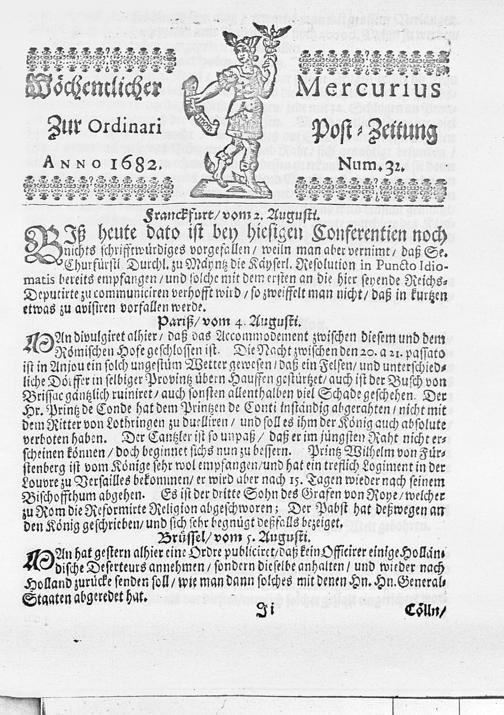 Wöchentlicher Mercurius
Zur Ordinari Post-Zeitung
ANNO 1682. Num. 32.
Franckfurt/ vom 2. Augusti.
Biß heute dato ist bey hiesigen Conferentien noch
nichts schrifftwürdiges vorgefallen/ weiln man aber vernimt/ daß Se.
Churfürstl. Durchl. zu Mäyntz die Käyserl. Resolution in Puncto Idio-
matis bereits empfangen/ und solche mit dem ersten an die hier seyende Reichs-
Deputirte zu communiciren verhofft wird/ so zweiffelt man nicht/ daß in kurtzen
etwas zu avisiren vorfallen werde.
Pariß/ vom 4. Augusti.
MAn divulgiret alhier/ daß das Accommodement zwischen diesem und dem
Römischen Hofe geschlossen ist. Die Nacht zwischen den 20. a 21. passato
ist in Anjou ein solch ungestüm Wetter gewesen/ daß ein Felsen/ und unterschied-
liche Dörffer in selbiger Provintz übern Hauffen gestürtzet/ auch ist der Busch von
Brissac gäntzlich ruiniret/ auch sonsten allenthalben viel Schade geschehen. Der
Hr. Printz de Conde hat dem Printzen de Conti inständig abgerahten/ nicht mit
dem Ritter von Lothringen zu duelliren/ und soll es ihm der König auch absolute
verboten haben. Der Cantzler ist so unpaß/ daß er im jüngsten Raht nicht er-
scheinen können/ doch beginnet sichs nun zu bessern. Printz Wilhelm von Für-
stenberg ist vom Könige sehr wol empfangen/ und hat ein treflich Logiment in der
Louvre zu Versailles bekommen/ er wird aber nach 15. Tagen wieder nach seinem
Bischoffthum abgehen. Es ist der dritte Sohn des Grafen von Roye/ welcher
zu Rom die Reformirte Religion abgeschworen; Der Pabst hat deßwegen an
den König geschrieben/ und sich sehr begnügt deßfalls bezeiget.
Brüssel/ vom 5. Augusti.
MAn hat gestern alhier eine Ordre publiciret/ daß kein Officirer einige Hollän-
dische Deserteurs annehmen/ sondern dieselbe anhalten/ und wieder nach
Holland zurücke senden soll/ wie man dann solches mit denen Hn. Hn. General-
Staaten abgeredet hat.
Ii Cölln/